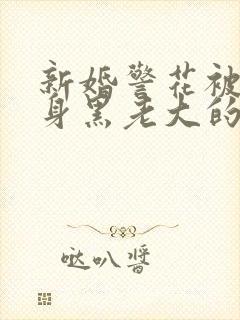 新婚警花被
身黑老大的
哒叭酱